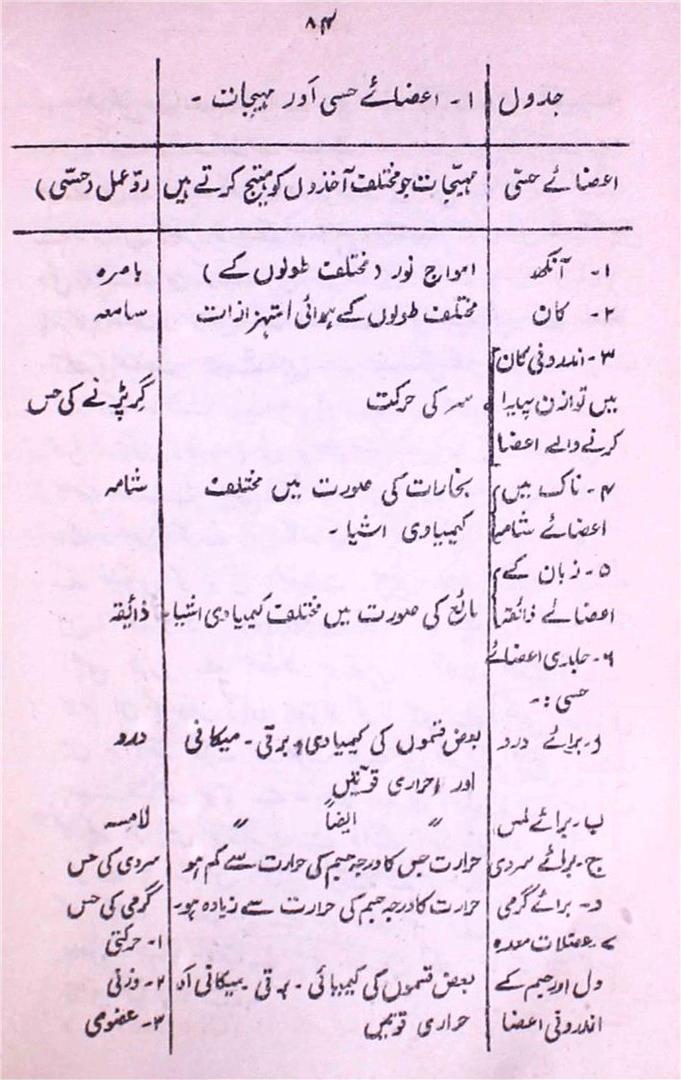 ۸۴
جدول ۱ - اعضائے حسی اَور مہیجات -
اعضائے حسّی مہیّجات جو مختلف آخذوں کو مہیّج کرتے ہیں ردّ عمل (حسّی)
۱- آنکھ امواج نور (مختلف طولوں کے) باصرہ
۲- کان مختلف طولوں کے ہوائی اہتزازات سامعہ
۳- اندرونی کان
میں توازن پیدا سر کی حرکت گر پڑنے کی حس
کرنے والے اعضا
۴- ناک میں بخارات کی صورت میں مختلف شامہ
اعضائے شامہ کیمیاوی اشیا -
۵- زبان کے
اعضائے ذائقہ مائع کی صورت میں مختلف کیمیاوی اشیا ذائقہ
۶- جلدی اعضائے
حسی :-
ا- برائے درد بعض قسموں کی کیمیاوی، برقی - میکانی درد
اور احراری قوتیں
ب- برائے لمس " ایضاً " لامسہ
ج- برائے سردی حرارت جس کا درجہ جسم کی حرارت سے کم ہو سردی کی حس
د- برائے گرمی حرارت کا درجہ جسم کی حرارت سے زیادہ ہو- گرمی کی حس
۷- عضلات معدہ ۱- حرکتی
دل اور جسم کے بعض قسموں کی کیمیائی - برقی - میکانی اور ۲- وزنی
اندرونی اعضا حراری قوتیں ۳- عضوی